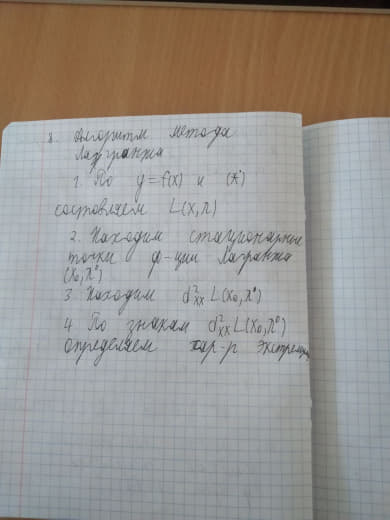 8. Алгоритм метода
Лагранжа
1. По y = f(x) и (*)
составляем L(x, λ)
2. Находим стационарные
точки ф-ции Лагранжа
(x₀, λ⁰)
3 Находим d²ₓₓ L(x₀, λ⁰)
4 По знакам d²ₓₓ L(x₀, λ⁰)
определяем хар-р экстремума